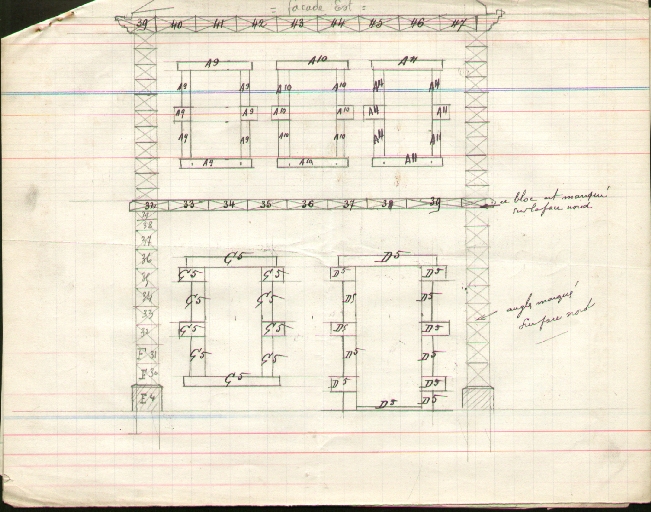 = façade Est =
39 40 41 42 43 44 45 46 47
A9 A10 A11
A9 A9 A10 A10 A11 A11
A9 A9 A10 A10 A11 A11
A9 A9 A10 A10 A11 A11
A9 A10 A11
32 33 34 35 36 37 38 39
ce bloc est marqué
sur la face nord
38
37
36
35
34
33
32
E 31
E 30
E4
G5 D5
G5 G5 D5 D5
G5 G5 D5 D5
G5 G5 D5 D5
G5 G5 D5 D5
G5 D5 D5
D5 D5
angles marqués
sur face nord